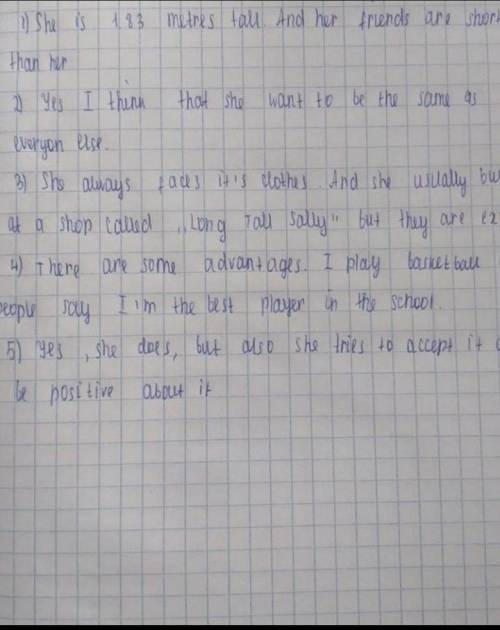 1) She is 1.83 metres tall. And her friends are short
than her
2) Yes I think that she want to be the same as
everyon else.
3) She always faces it's clothes. And she usually bu
at a shop called ,,Long Tall Sally" but they are ex
4) There are some advantages. I play basketball
people say I'm the best player in the school.
5) Yes, she does, but also she tries to accept it a
be positive about it